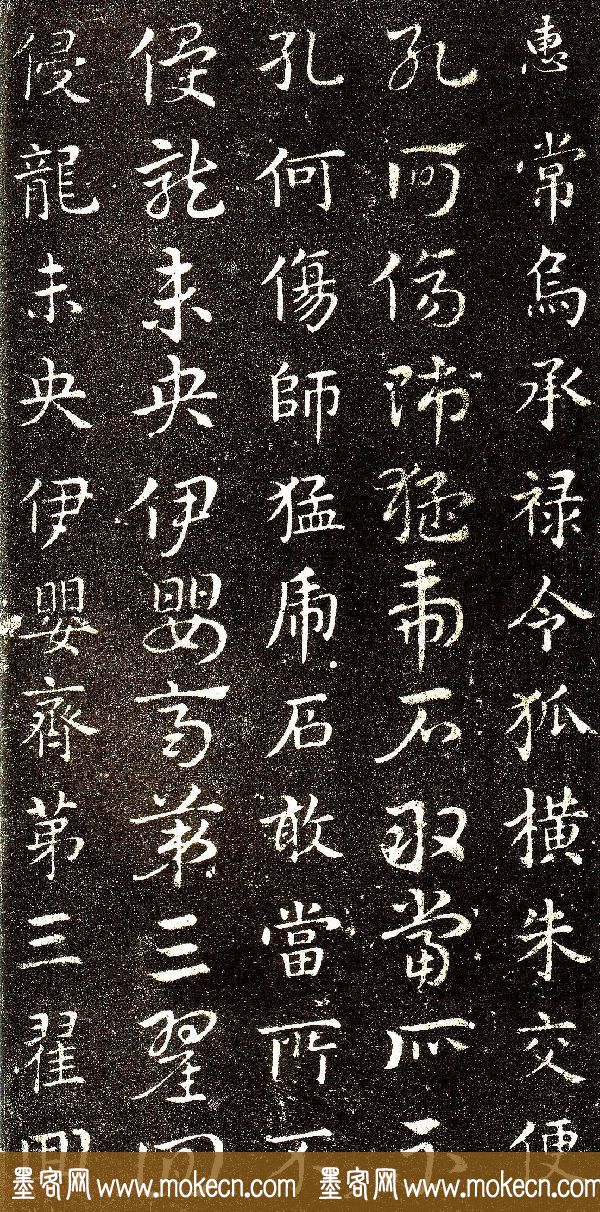 惠常烏承禄令狐橫朱交便
孔何傷師猛虎石敢當所不
孔何傷師猛虎石敢當所不
侵龍未央伊嬰齊第三翟回
侵龍未央伊嬰齊第三翟回
墨客网 www.mokecn.com 墨客网 www.mokecn.com